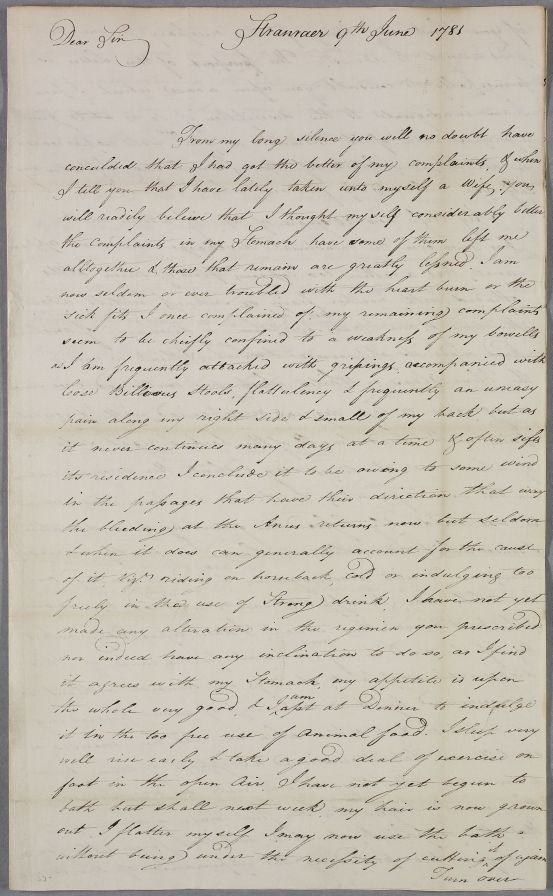 Dear Sir
Stranraer 9th June 1781
From my long silence you will no doubt have
concluded that I had got the better of my complaints & when
I tell you that I have lately taken unto myself a Wife, you
will readily beleive that I thought myself considerably better
the complaints in my Stomach have some of them left me
alltogether & those that remain are greatly lessned I am
now seldom or ever troubled with the heart burn or the
sick fits I once complained of, my remaining complaints
seem to be chiefly confined to a weakness of my bowells
as I am frequently attacked with gripings, accompanied with
loose Billious Stools, flattulency & frequently an uneasy
pain along my right side & small of my back but as
it never continues many days at a time & often sifts
its residence I conclude it to be owong to some wind
in the passages that have their direction that way
the bleeding at the Anus returns now but seldom
& when it does can generally account for the cause
of it Vizt. riding on horseback, cold or indulging too
freely in the use of Strong drink. I have not yet
made any alteration in the regimen you prescribed
nor indeed have any inclination to do so, as I find
it agrees with my Stomach, my appetite is upon
the whole very good, & I am apt at Dinner to indulge
it in the too free use of animal food. I sleep very
well rise early & take a good deal of exercise on
foot in the open Air, I have not yet begun to
bath but shall next week, my hair is now grown
out I flatter myself I may now use the bath
without being under the necessity of cutting it of again
Turn over